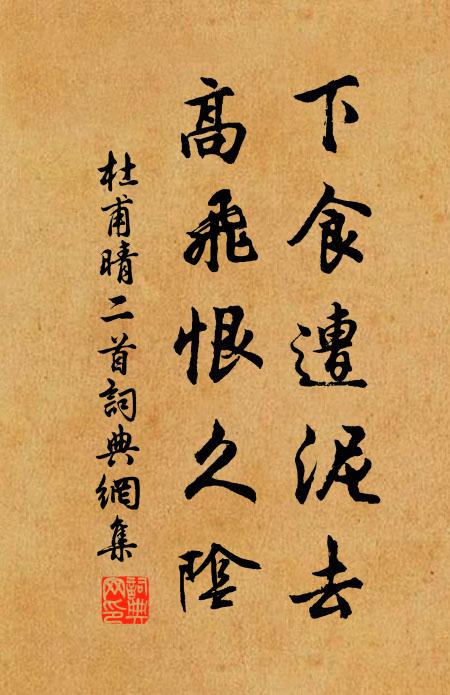 下食遭泥去
高飛恨久陰
杜甫晴二首詞典網集
詞典
网印